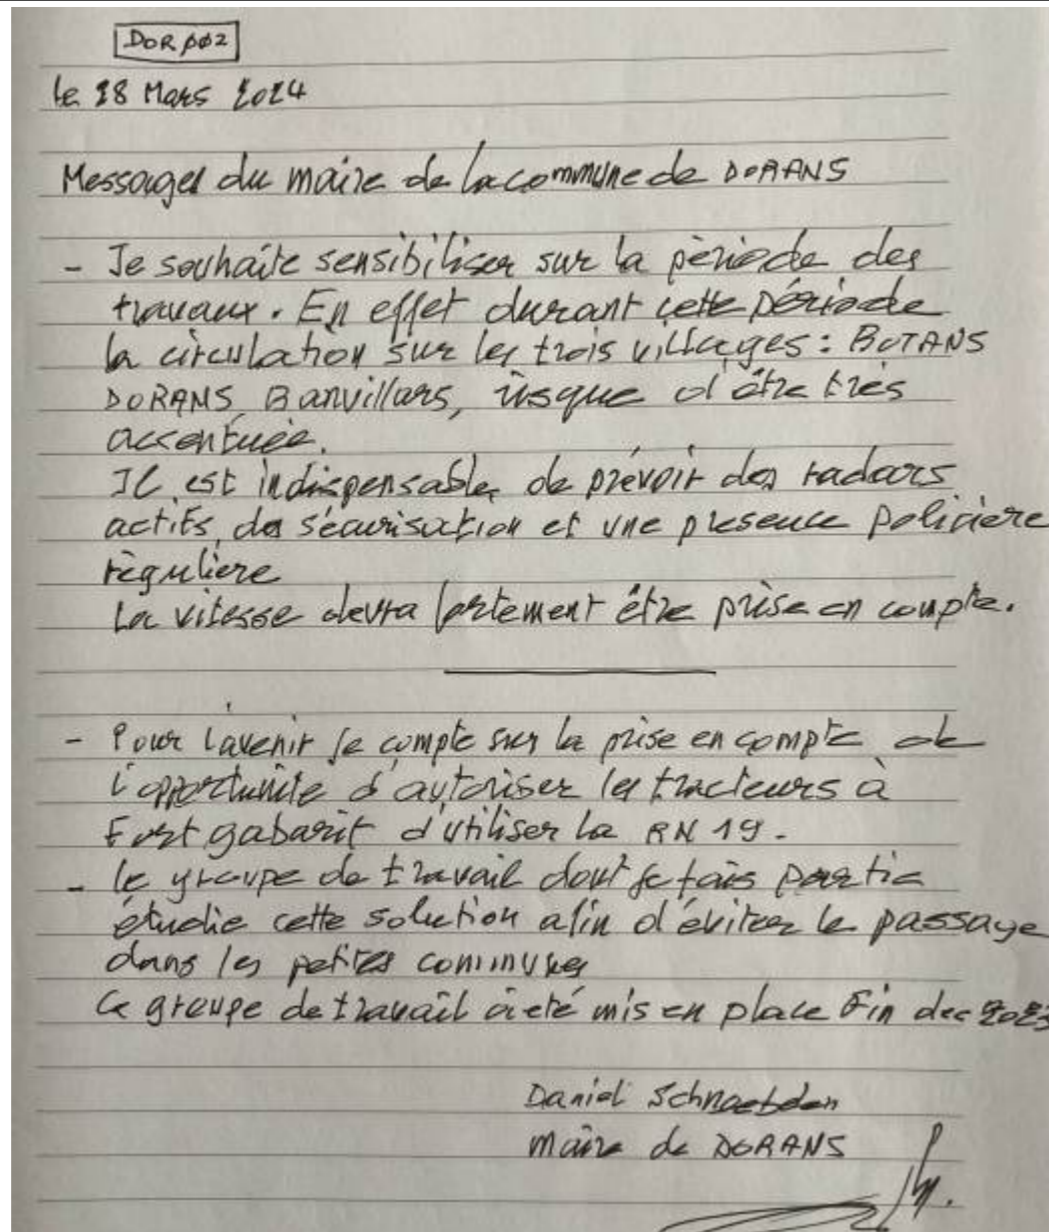 DOR ØØ2
le 28 Mars 2024
Messages du maire de la commune de DORANS
- Je souhaite sensibiliser sur la période des
travaux. En effet durant cette période
la circulation sur les trois villages : BOTANS
DORANS, Banvillars, risque d'être très
accentuée.
Il est indispensable de prévoir des radars
actifs, de sécurisation et une présence policière
régulière
La vitesse devra fortement être prise en compte.
- Pour l'avenir je compte sur la prise en compte de
l'opportunité d'autoriser les tracteurs à
Fort gabarit d'utiliser la RN 19.
- le groupe de travail dont je fais partie
étudie cette solution afin d'éviter le passage
dans les petites communes
Ce groupe de travail a été mis en place Fin dec 2023
Daniel
maire de DORANS